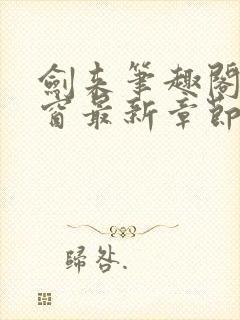 劍来筆趣閣
窗最新章節
歸咎.